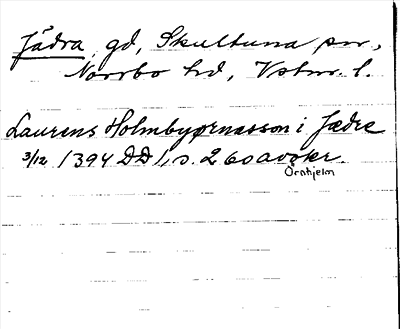 Jädra, gd, Skultuna sn,
Norrbo hd, Vstm. l.
Laurens Holmbyørnasson i Jædre
3/12 1394 DD 1, s. 260 avskr.
Örnhjelm